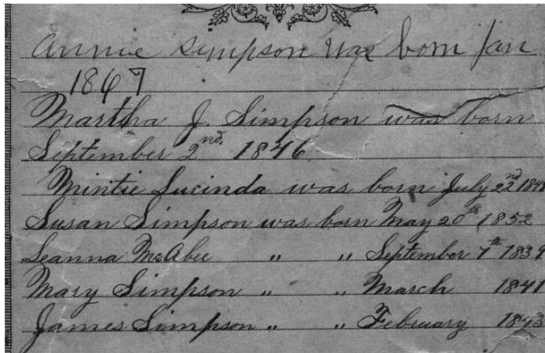 Annie Simpson was born Jan
1867
Martha J. Simpson was born
September 2nd, 1846.
Mintie Lucinda was born July 22nd
Susan Simpson was born May 20th, 1852
Leanna McAbee " " September 7th 1839
Mary Simpson " " March 1841
James Simpson " " February 1843